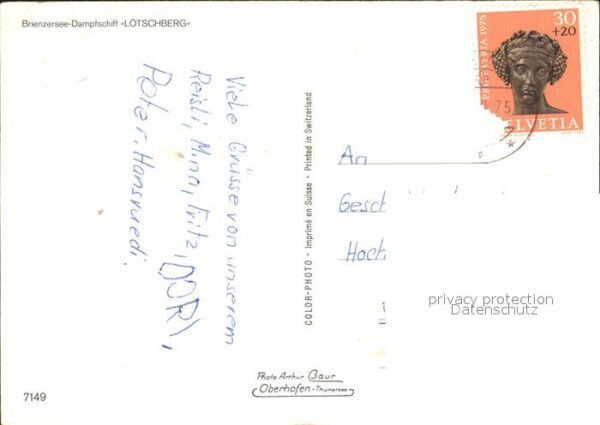 Brienzersee-Dampfschiff «LÖTSCHBERG»
Viele Grüsse von unserem
Reisli, Mina, Fritz, DORI,
Peter, Hansruedi,
COLOR-PHOTO - Imprimé en Suisse - Printed in Switzerland
PRO PATRIA 1975
30
+20
HELVETIA
75
An
Gesch
Hoch
privacy protection
Datenschutz
Photo Arthur Baur
Oberhofen-Thunersee
7149